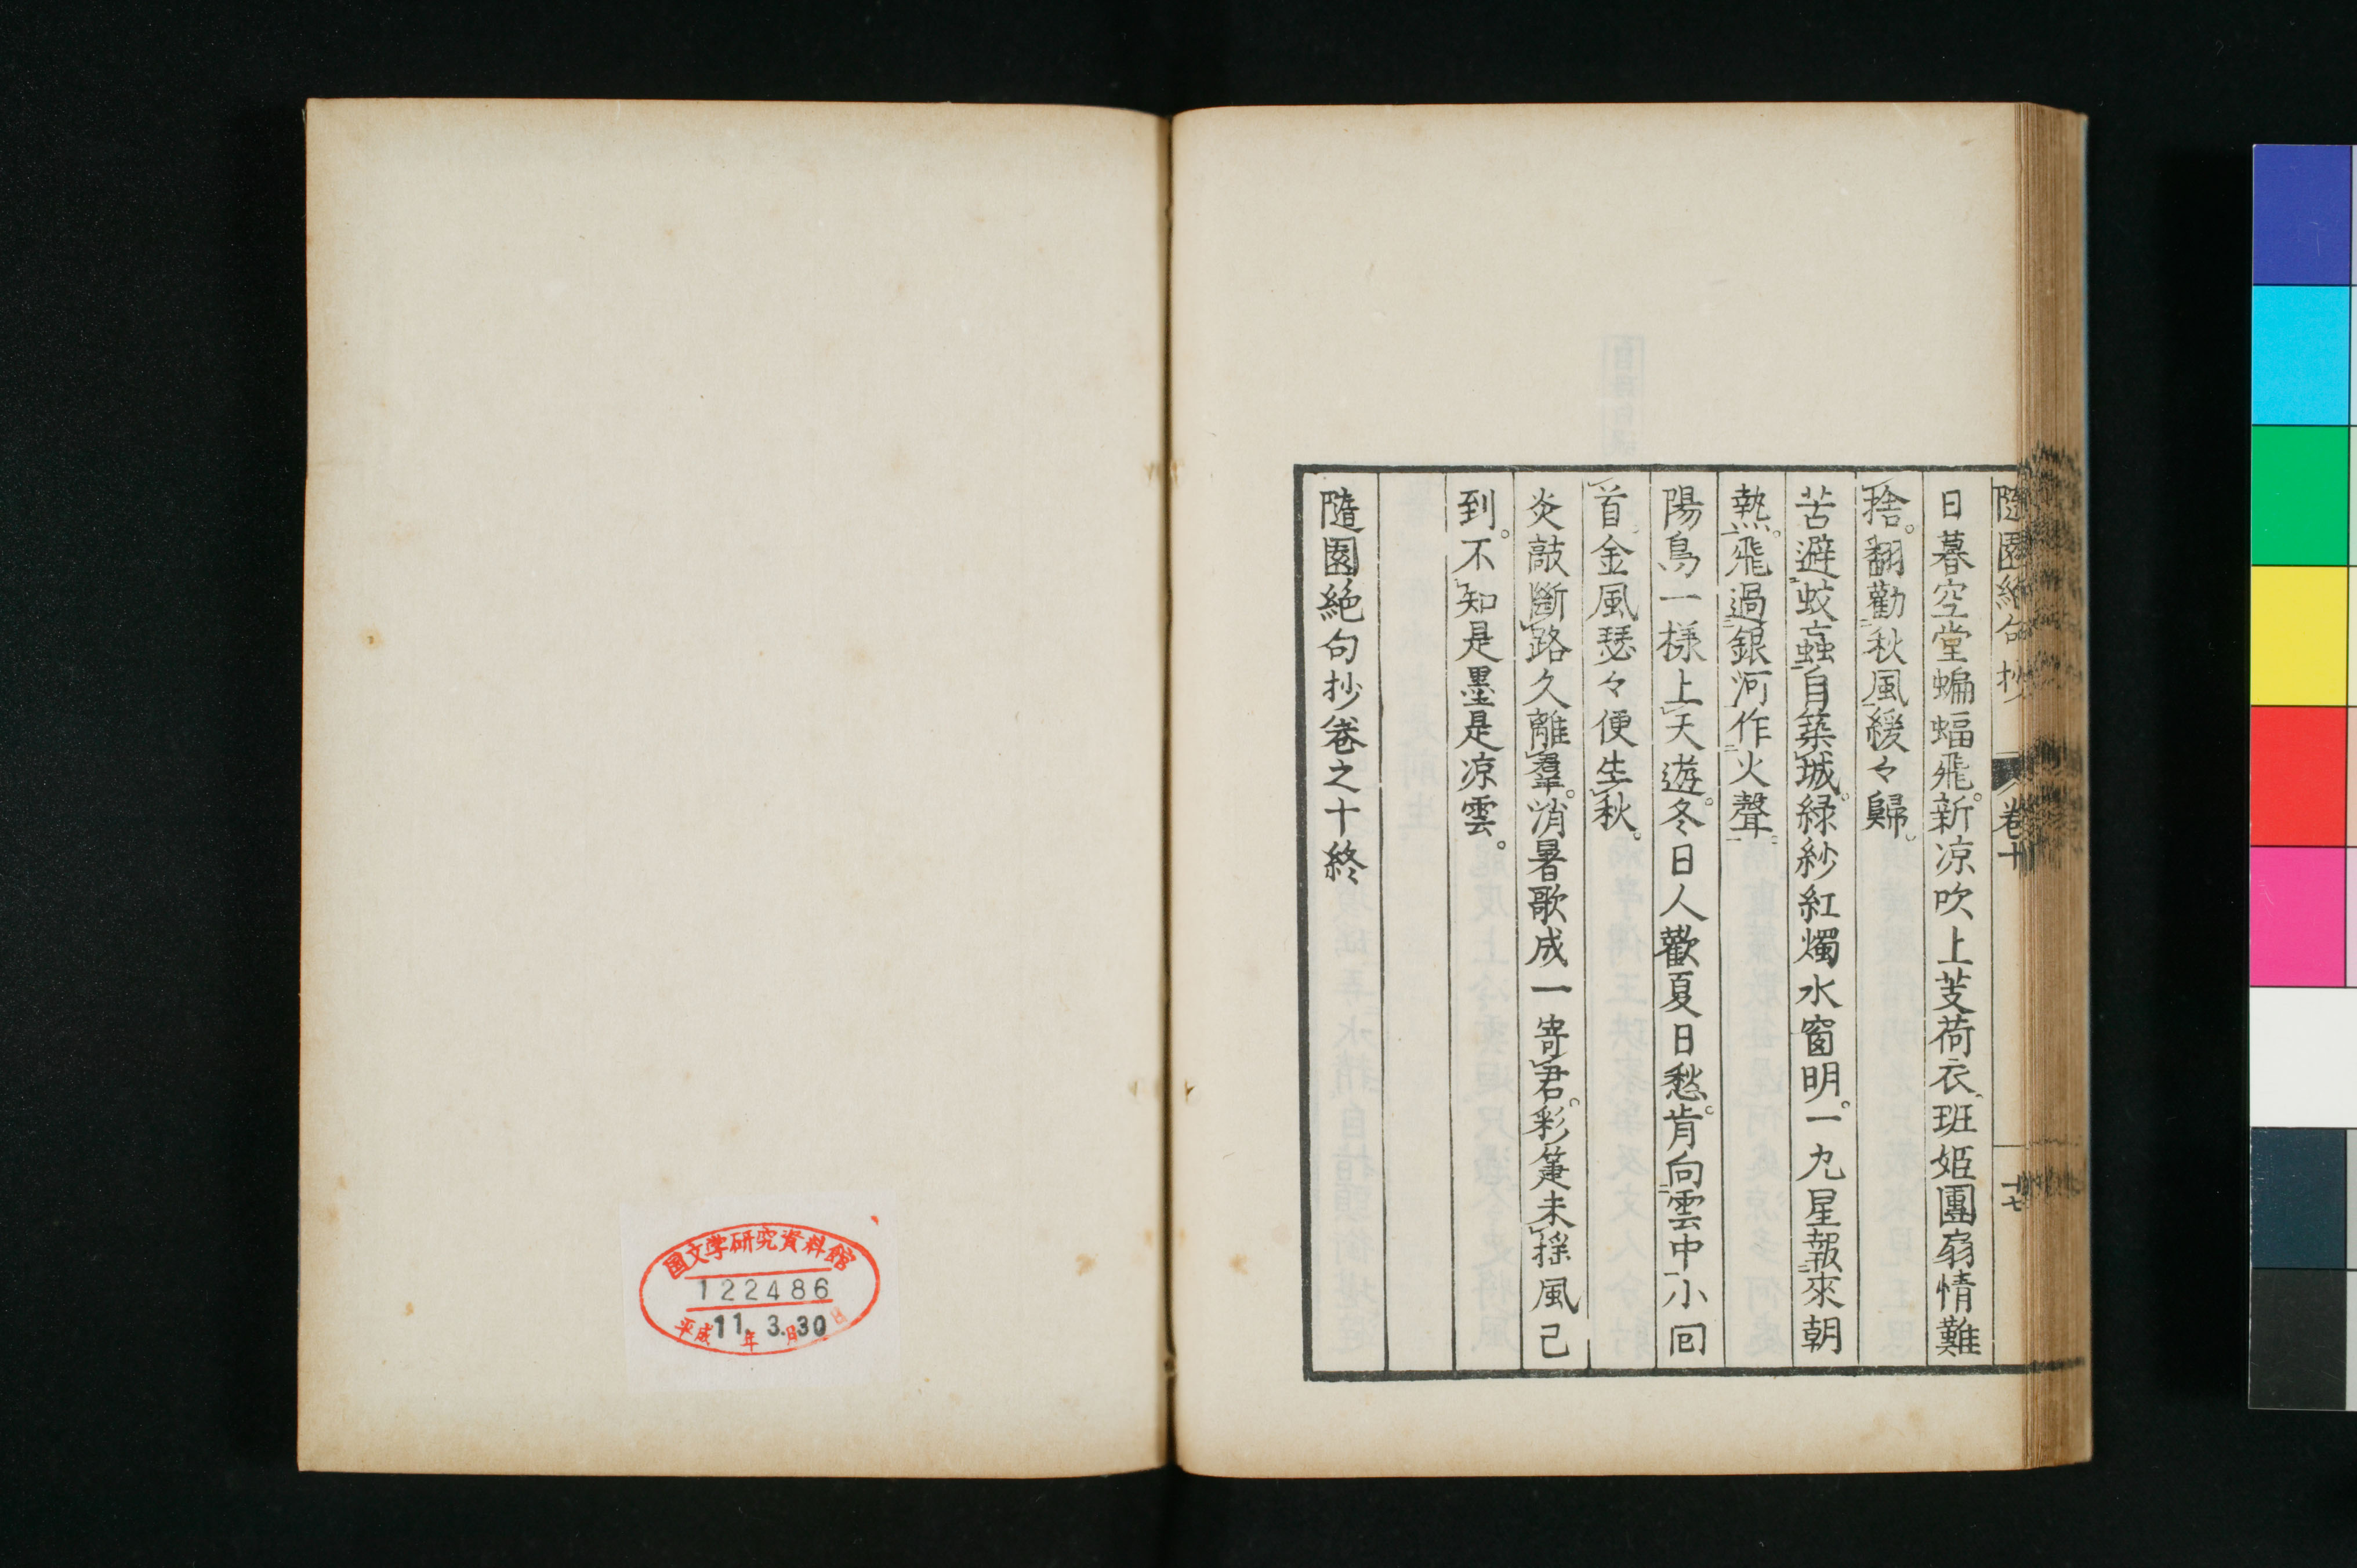 隨園絶句抄 卷十 十七
日暮空堂蝙蝠飛。新凉吹上芰荷衣。班姬團扇情難
捨。翻勸秋風緩々歸。
苦避蚊蟲自築城。緑紗紅燭水窗明。一丸星報來朝
熱。飛過銀河作火聲。
陽鳥一様上天遊。冬日人歡夏日愁。肯向雲中小囘
首。金風瑟々便生秋。
炎敲斷路久離羣。消暑歌成一寄君。彩箑未揺風已
到。不知是墨是凉雲。
隨園絶句抄卷之十終
国文学研究資料館
122486
平成11年3.月30日